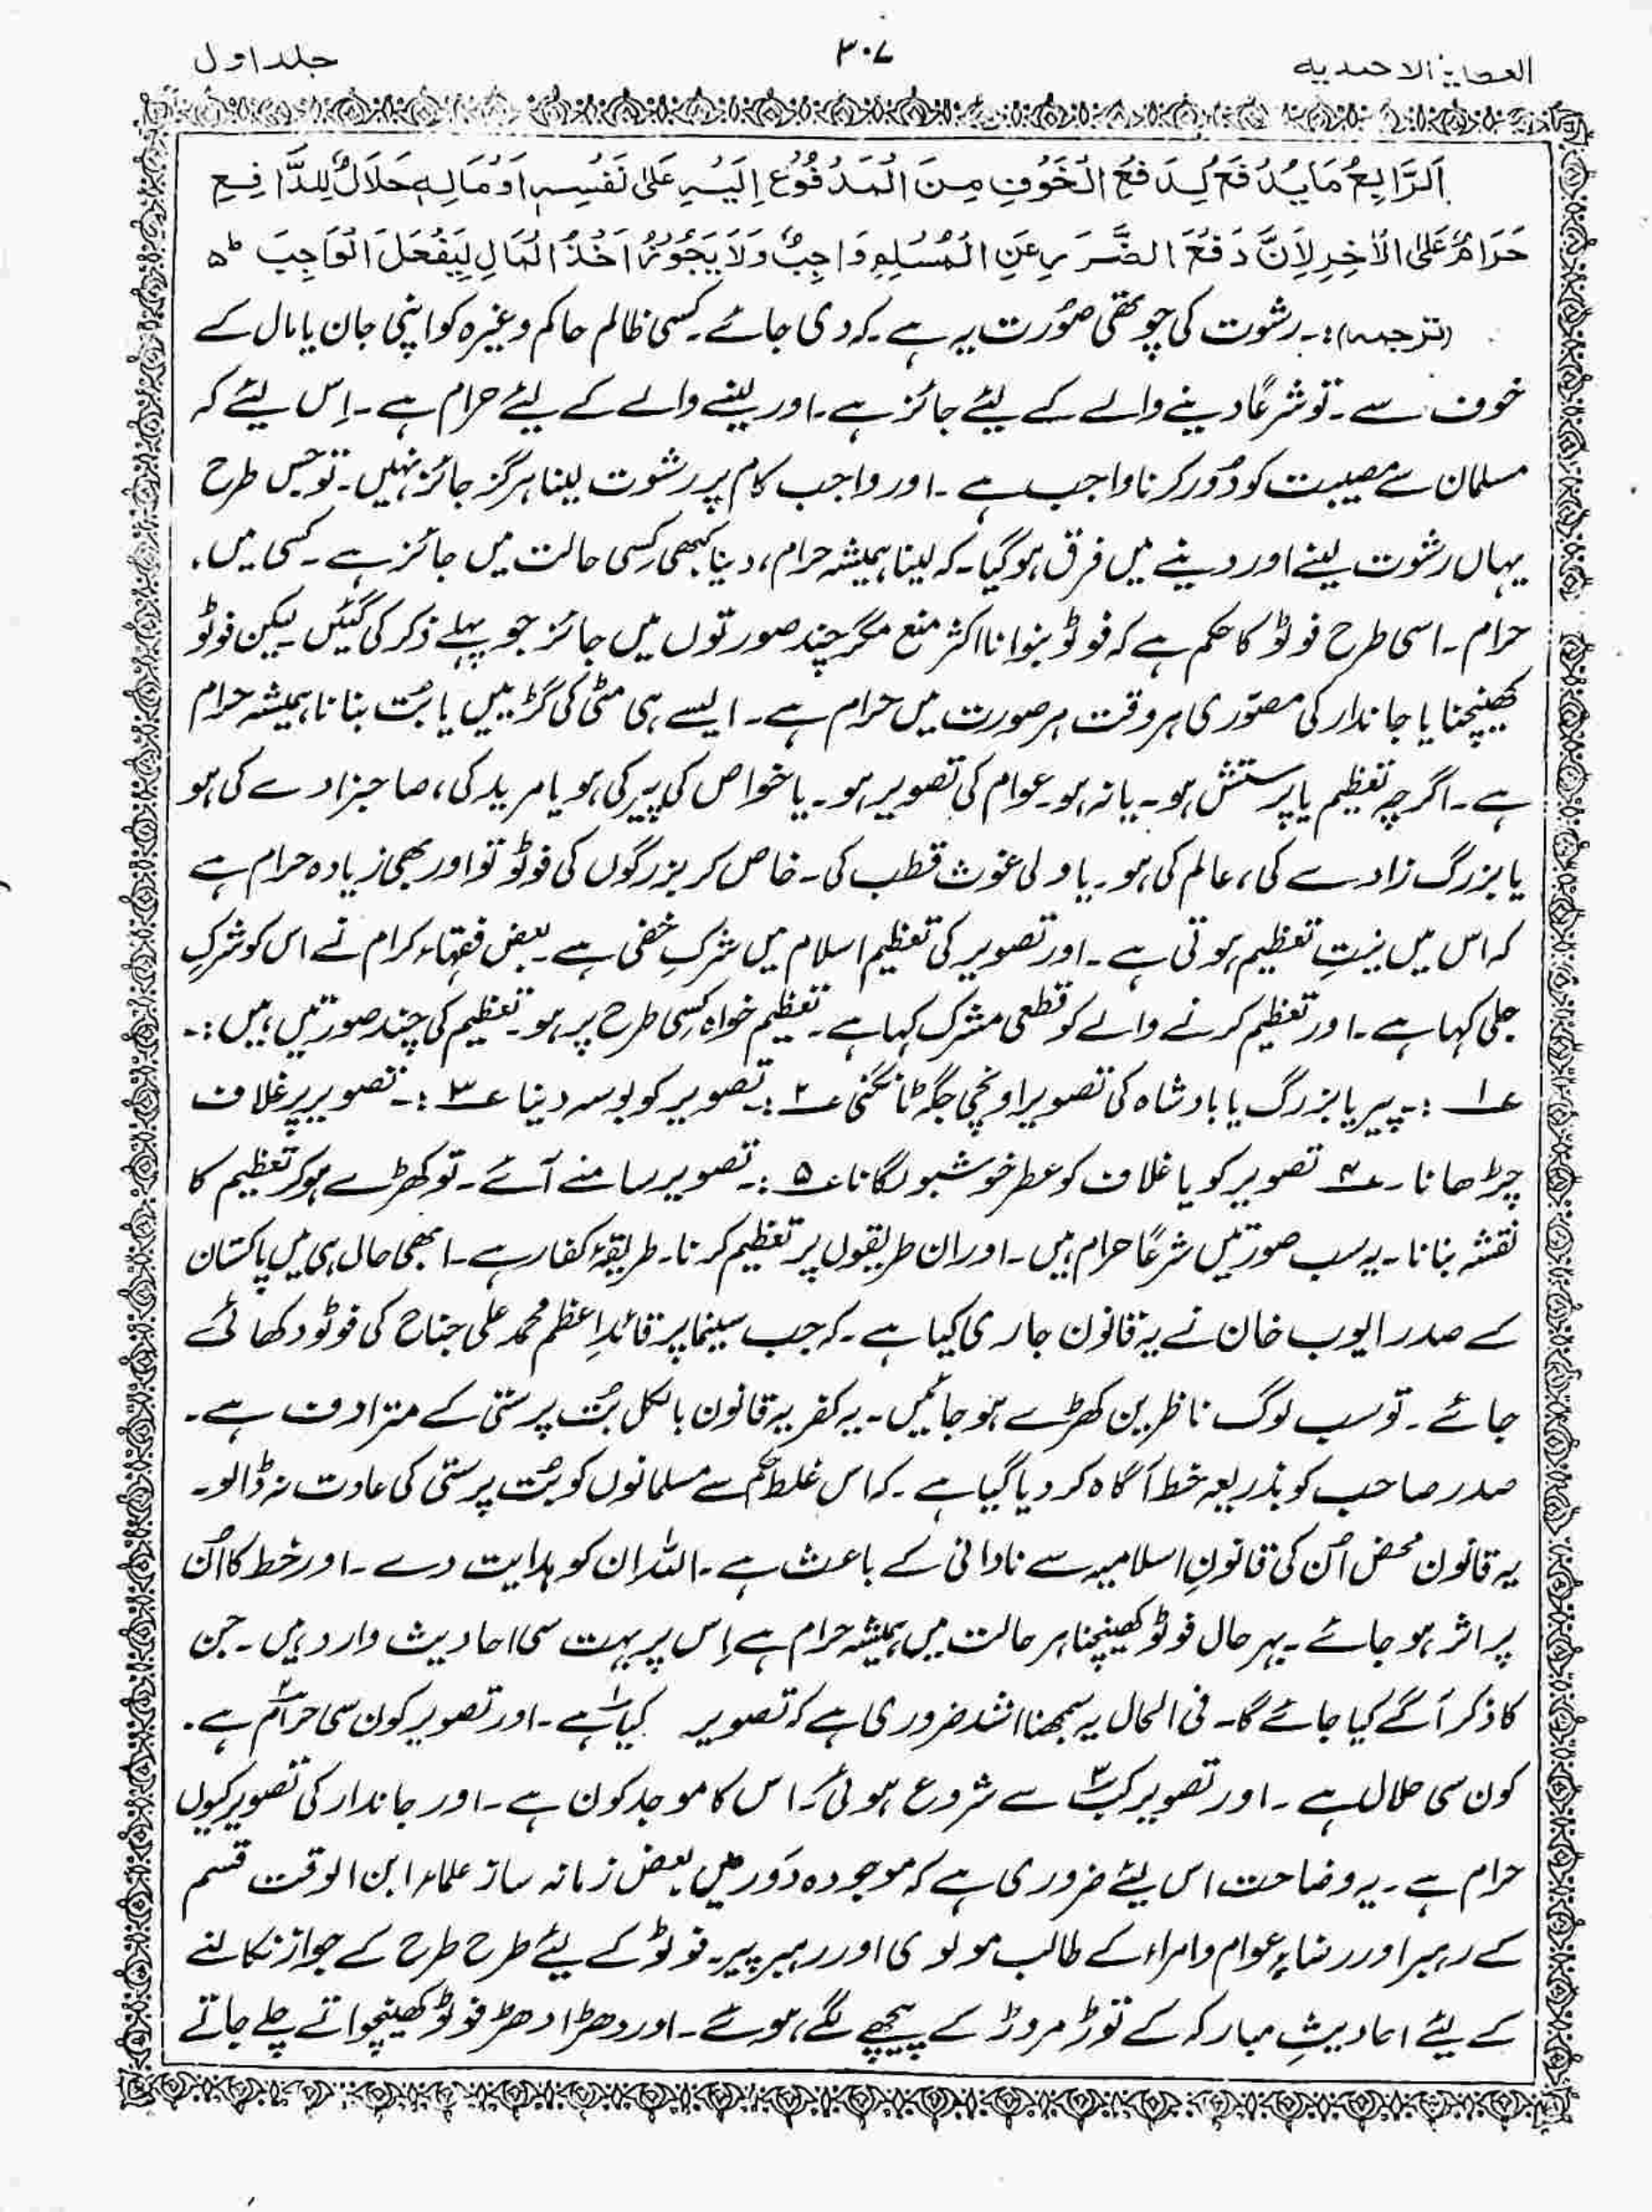 العطایا الاحمدیه
۳۰۷
جلد اول
اَلرَّابِعُ مَا یُدْفَعُ لِدَفْعِ الْخَوْفِ مِنَ الْمَدْفُوْعِ اِلَیْہِ عَلٰی نَفْسِہٖ اَوْ مَالِہٖ حَلَالٌ لِلدَّافِعِ
حَرَامٌ عَلَی الْاٰخِرِ لِاَنَّ دَفْعَ الضَّرَرِ عَنِ الْمُسْلِمِ وَاجِبٌ وَلَا یَجُوْزُ اَخْذُ الْمَالِ لِیَفْعَلَ الْوَاجِبَ ط ۵
(ترجمہ):۔ رشوت کی چوتھی صُورت یہ ہے ۔ کہ دی جائے ۔ کسی ظالم حاکم وغیرہ کو اپنی جان یا مال کے
خوف سے ۔ تو شرعًا دینے والے کے لیئے جائز ہے ۔ اور لینے والے کے لیئے حرام ہے ۔ اِس لیئے کہ
مسلمان سے مصیبت کو دُور کرنا واجب ہے ۔ اور واجب کام پر رشوت لینا ہرگز جائز نہیں ۔ تو جس طرح
یہاں رشوت لینے اور دینے میں فرق ہو گیا ۔ کہ لینا ہمیشہ حرام، دینا کبھی کِسی حالت میں جائز ہے ۔ کسی میں،
حرام ۔ اسی طرح فوٹو کا حکم ہے کہ فوٹو بنوانا اکثر منع مگر چند صورتوں میں جائز جو پہلے ذکر کی گئیں لیکن فوٹو
کھینچنا یا جاندار کی مصوّری ہر وقت ہر صورت میں حرام ہے ۔ ایسے ہی مٹی کی گڑییں یا بُت بنانا ہمیشہ حرام
ہے ۔ اگرچہ تعظیم یا پرستش ہو ۔ یا نہ ہو ۔ عوام کی تصویر ہو ۔ یا خواص کی پیر کی ہو یا مرید کی، صاحبزادے کی ہو
یا بزرگ زادے کی، عالم کی ہو ۔ یا ولی غوث قطب کی ۔ خاص کر بزرگوں کی فوٹو تو اور بھی زیادہ حرام ہے
کہ اس میں نیتِ تعظیم ہوتی ہے ۔ اور تصویر کی تعظیم اسلام میں شرکِ خفی ہے ۔ بعض فقہاء کرام نے اس کو شرکِ
جلی کہا ہے ۔ اور تعظیم کرنے والے کو قطعی مشرک کہا ہے ۔ تعظیم خواہ کِسی طرح پر ہو ۔ تعظیم کی چند صورتیں ہیں :۔
؏۱ :۔ پیر یا بزرگ یا بادشاہ کی تصویر اونچی جگہ ٹانگنی ؏۲ :۔ تصویر کو بوسہ دینا ؏۳ :۔ تصویر پر غلاف
چڑھانا ۔ ؏۴ تصویر کو یا غلاف کو عطر خوشبو لگانا ؏۵ :۔ تصویر سامنے آئے ۔ تو کھڑے ہو کر تعظیم کا
نقشہ بنانا ۔ یہ سب صورتیں شرعًا حرام ہیں ۔ اور ان طریقوں پر تعظیم کرنا ۔ طریقۂ کفار ہے ۔ ابھی حال ہی میں پاکستان
کے صدر ایوب خان نے یہ قانون جاری کیا ہے ۔ کہ جب سینما پر قائدِ اعظم محمد علی جناح کی فوٹو دکھائی
جائے ۔ تو سب لوگ ناظرین کھڑے ہو جائیں ۔ یہ کفریہ قانون بالکل بُت پرستی کے مترادف ہے ۔
صدر صاحب کو بذریعہ خط آگاہ کر دیا گیا ہے ۔ کہ اس غلط حکم سے مسلمانوں کو بُت پرستی کی عادت نہ ڈالو ۔
یہ قانون محض اُن کی قانونِ اسلامیہ سے نادانی کے باعث ہے ۔ اللہ ان کو ہدایت دے ۔ اور خط کا اُن
پر اثر ہو جائے ۔ بہر حال فوٹو کھینچنا ہر حالت میں ہمیشہ حرام ہے اِس پر بہت سی احادیث وارد ہیں ۔ جن
کا ذکر آگے کیا جائے گا ۔ فی الحال یہ سمجھنا اشد ضروری ہے کہ تصویر کیا۱ ہے ۔ اور تصویر کون سی حرام۲ ہے ۔
کون سی حلال ہے ۔ اور تصویر کب۳ سے شروع ہوئی ۔ اس کا موجد کون ہے ۔ اور جاندار کی تصویر کیوں
حرام ہے ۔ یہ وضاحت اس لیئے ضروری ہے کہ موجودہ دَور میں بعض زمانہ ساز علماء ابن الوقت قسم
کے رہبر اور رضاءِ عوام و امراء کے طالب مولوی اور رہبر پیر ۔ فوٹو کے لیئے طرح طرح کے جواز نکالنے
کے لیئے احادیثِ مبارکہ کے توڑ مروڑ کے پیچھے لگے ہوئے ۔ اور دھڑا دھڑ فوٹو کھینچواتے چلے جاتے